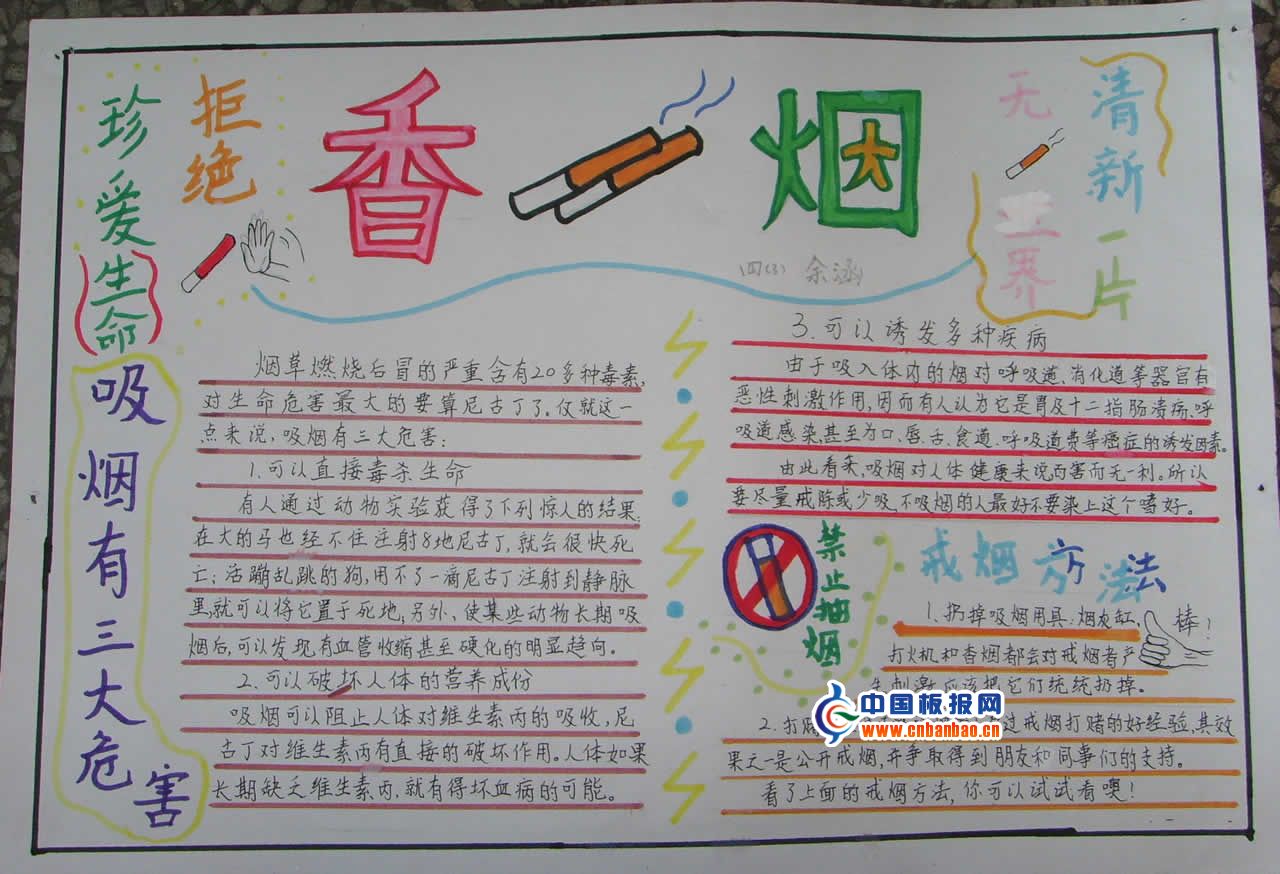 珍爱生命
拒绝
香烟
无
烟
世界
清新一片
四(3) 余涵
吸烟有三大危害
烟草燃烧后冒的严重含有20多种毒素,
对生命危害最大的要算尼古丁了。仅就这一
点来说,吸烟有三大危害:
1.可以直接毒杀生命
有人通过动物实验获得了下列惊人的结果:
在大的马也经不住注射8地尼古丁,就会很快死
亡;活蹦乱跳的狗,用不了一滴尼古丁注射到静脉
里,就可以将它置于死地;另外、使某些动物长期吸
烟后,可以发现有血管收缩甚至硬化的明显趋向。
2.可以破坏人体的营养成份
吸烟可以阻止人体对维生素丙的吸收,尼
古丁对维生素丙有直接的破坏作用。人体如果
长期缺乏维生素丙,就有得坏血病的可能。
3.可以诱发多种疾病
由于吸入体内的烟对呼吸道、消化道等器官有
恶性刺激作用,因而有人认为它是胃及十二指肠溃疡、呼
吸道感染,甚至为口、唇、舌、食道、呼吸道贲等癌症的诱发因素。
由此看来,吸烟对人体健康来说,百害而无一利。所以
要尽量戒除或少吸,不吸烟的人最好不要染上这个嗜好。
禁止抽烟
戒烟方法
1、扔掉吸烟用具:烟灰缸,
棒!
打火机和香烟都会对戒烟者产
生刺激,应该把它们统统扔掉。
2.打赌
过戒烟打赌的好经验,其效
果之一是公开戒烟,并争取得到朋友和同事们的支持。
看了上面的戒烟方法,你可以试试看噢!
中国板报网
www.cnbanbao.cn